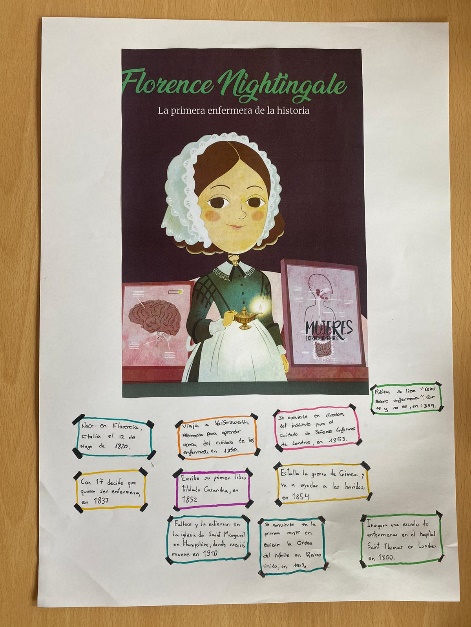 Florence Nightingale
La primera enfermera de la historia
MUJERES
Nace en Florencia,
Italia el 12 de
Mayo de 1820.
Viaja a
para aprender
acerca del cuidado de los
enfermos, en 1850.
Se convierte en directora
del instituto para el
cuidado de Señoras Enfermas
de Londres, en 1853.
en 1859.
Con 17 decide que
quiere ser enfermera,
en 1837
Escribe su primer libro
titulado Cassandra, en
1852
Estalla la guerra de Crimea y
va a ayudar a los heridos,
en 1854
Fallece y la entierran en
la iglesia de Saint Margaret
en Hampshire, donde creció
muere en 1910
Se convierte en la
primera mujer en
recibir la Orden
del mérito en Reino
Unido, en 1907.
Inaugura una escuela de
enfermeras en el hospital
Saint Thomas en Londres
en 1860.